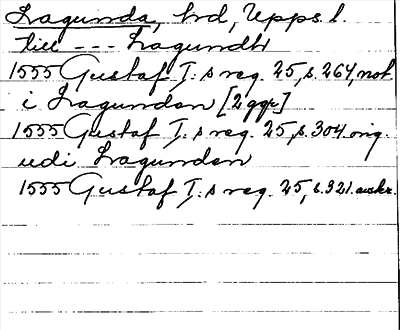 Lagunda, hd, Upps. l.
till --- Lagundh
1555 Gustaf I:s reg. 25, s. 264, not.
i Lagundan [2 ggr]
1555 Gustaf I:s reg. 25, s. 304 orig.
udi Lagundan
1555 Gustaf I:s reg. 25, s. 321. avskr.